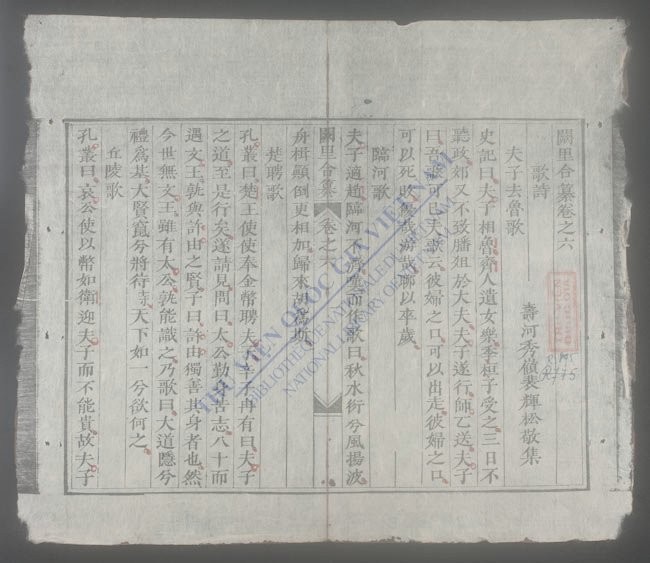 闕里合纂卷之六
壽河秀嶺裴輝松敬集
歌詩
夫子去魯歌
史記曰夫子相魯齊人遺女樂季桓子受之三日不
聽政郊又不致膰狙於大夫夫子遂行師乙送夫子
曰吾歌可已夫歌云彼婦之口可以出走彼婦之口
可以死敗優哉游哉聊以卒歲
臨河歌
夫子適趙臨河不濟而作歌曰秋水衍兮風揚波
闕里合纂 卷之六
舟楫顛倒更相加歸來歸來胡爲斯
楚聘歌
孔叢曰楚王使使奉金幣聘夫子宰予冉有曰夫子
之道至是行矣遂請見問曰太公勤身苦志八十而
遇文王孰與許由之賢子曰許由獨善其身者也然
今世無文王雖有太公孰能識之乃歌曰大道隱兮
禮爲基大賢竄兮將待時天下如一兮欲何之
丘陵歌
孔叢曰哀公使以幣如衛迎夫子而不能賞故夫子
THƯ VIỆN QUỐC GIA VIỆT NAM
BIBLIOTHÈQUE NATIONALE DU VIETNAM
NATIONAL LIBRARY OF VIETNAM